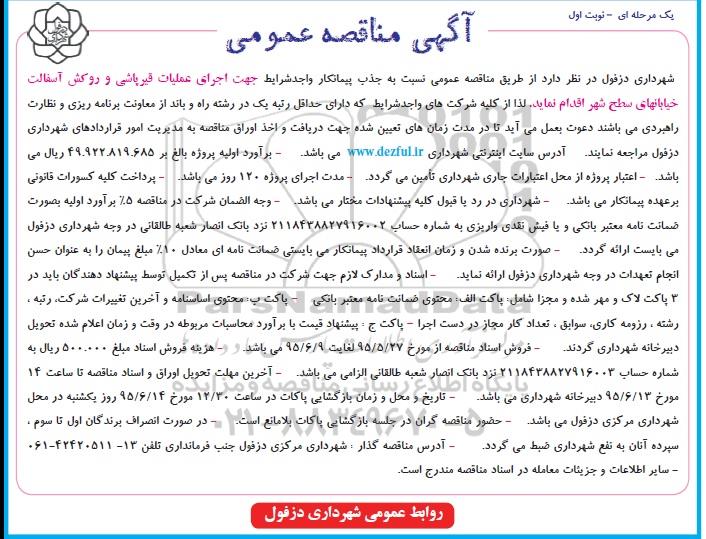 یک مرحله ای - نوبت اول
آگهی مناقصه عمومی
شهرداری دزفول در نظر دارد از طریق مناقصه عمومی نسبت به جذب پیمانکار واجدشرایط جهت اجرای عملیات قیرپاشی و روکش آسفالت
خیابانهای سطح شهر اقدام نماید. لذا از کلیه شرکت های واجدشرایط که دارای حداقل رتبه یک در رشته راه و باند از معاونت برنامه ریزی و نظارت
راهبردی می باشند دعوت بعمل می آید تا در مدت زمان های تعیین شده جهت دریافت و اخذ اوراق مناقصه به مدیریت امور قراردادهای شهرداری
دزفول مراجعه نمایند. آدرس سایت اینترنتی شهرداری www.dezful.ir می باشد. - برآورد اولیه پروژه بالغ بر ۴۹.۹۲۲.۸۱۹.۶۸۵ ریال می
باشد. - اعتبار پروژه از محل اعتبارات جاری شهرداری تأمین می گردد. - مدت اجرای پروژه ۱۲۰ روز می باشد. - پرداخت کلیه کسورات قانونی
برعهده پیمانکار می باشد. - شهرداری در رد یا قبول کلیه پیشنهادات مختار می باشد. - وجه الضمان شرکت در مناقصه ۵٪ برآورد اولیه بصورت
ضمانت نامه معتبر بانکی و یا فیش نقدی واریزی به شماره حساب ۲۱۱۸۴۳۸۸۲۷۹۱۶۰۰۲ نزد بانک انصار شعبه طالقانی در وجه شهرداری دزفول
می بایست ارائه گردد. - صورت برنده شدن و زمان انعقاد قرارداد پیمانکار می بایستی ضمانت نامه ای معادل ۱۰٪ مبلغ پیمان را به عنوان حسن
انجام تعهدات در وجه شهرداری دزفول ارائه نماید. - اسناد و مدارک لازم جهت شرکت در مناقصه پس از تکمیل توسط پیشنهاد دهندگان باید در
۳ پاکت لاک و مهر شده و مجزا شامل: پاکت الف: محتوی ضمانت نامه معتبر بانکی - پاکت ب: محتوی اساسنامه و آخرین تغییرات شرکت، رتبه ،
رشته ، رزومه کاری، سوابق ، تعداد کار مجاز در دست اجرا - پاکت ج : پیشنهاد قیمت با برآورد محاسبات مربوطه در وقت و زمان اعلام شده تحویل
دبیرخانه شهرداری گردند. - فروش اسناد مناقصه از مورخ ۹۵/۵/۲۷ لغایت ۹۵/۶/۹ می باشد. - هزینه فروش اسناد مبلغ ۵۰۰.۰۰۰ ریال به
شماره حساب ۲۱۱۸۴۳۸۸۲۷۹۱۶۰۰۳ نزد بانک انصار شعبه طالقانی الزامی می باشد. - آخرین مهلت تحویل اوراق و اسناد مناقصه تا ساعت ۱۴
مورخ ۹۵/۶/۱۳ دبیرخانه شهرداری می باشد. - تاریخ و محل و زمان بازگشایی پاکات در ساعت ۱۲/۳۰ مورخ ۹۵/۶/۱۴ روز یکشنبه در محل
شهرداری مرکزی دزفول می باشد. - حضور مناقصه گران در جلسه بازگشایی پاکات بلامانع است. - در صورت انصراف برندگان اول تا سوم ،
سپرده آنان به نفع شهرداری ضبط می گردد. - آدرس مناقصه گذار : شهرداری مرکزی دزفول جنب فرمانداری تلفن ۱۳- ۴۲۴۲۰۵۱۱-۰۶۱
- سایر اطلاعات و جزئیات معامله در اسناد مناقصه مندرج است.
روابط عمومی شهرداری دزفول
ParsNamadData
پایگاه اطلاع رسانی مناقصه و مزایده
۰۲۱-۸۸۳۴۹۶۷۰-۵